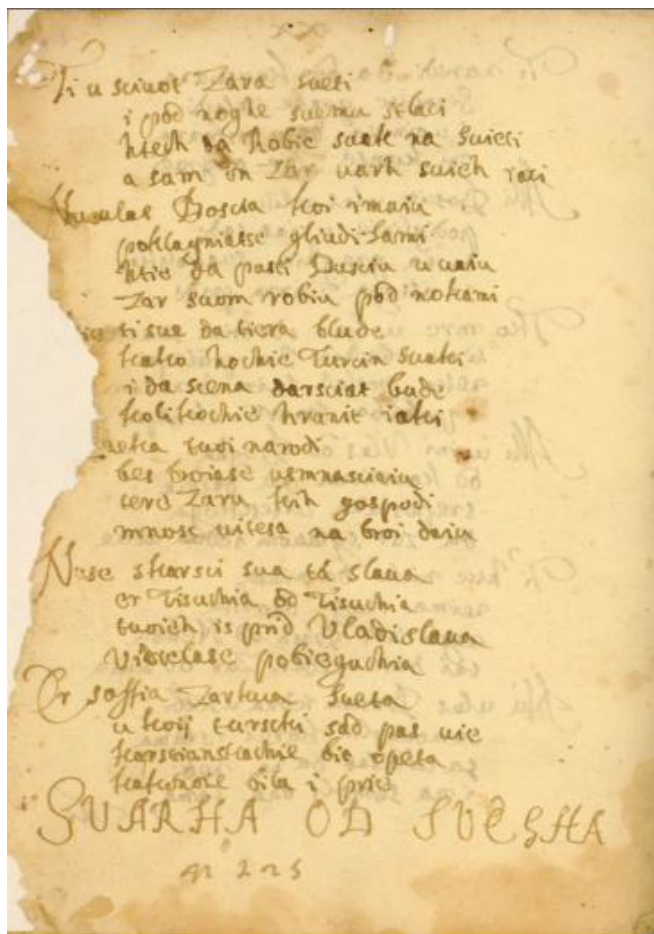 Ti u scivot Zara sueti
i pod noghe suemu stlaci
htech da robie suak na suieti
a sam on Zar uarh suich jaci
Boscia koi imaiu
poklagniasse gliudi sami
htie da pasci Dusciu u uaiu
Zar suom robiu pod nokami
ti sue da tiera blude
kako hochie Turcin suaki
i da scena darsciat bude
kolikochie hranit jaki
tuoi narodi
bes broiase usmnasciaiu
tere Zaru kih gospodi
mnosc uitesa na broi daiu
Nase starsci sua ta slaua
er Tisuchia od Tisuchia
tuoieh is prid Vladislaua
Vidielase pobieguchia
Er soffia Zartua sueta
u koij turscki sad pas uie
karscianskachie bit opeta
kakonoie bila i prie
SUARHA OD SUEGHA